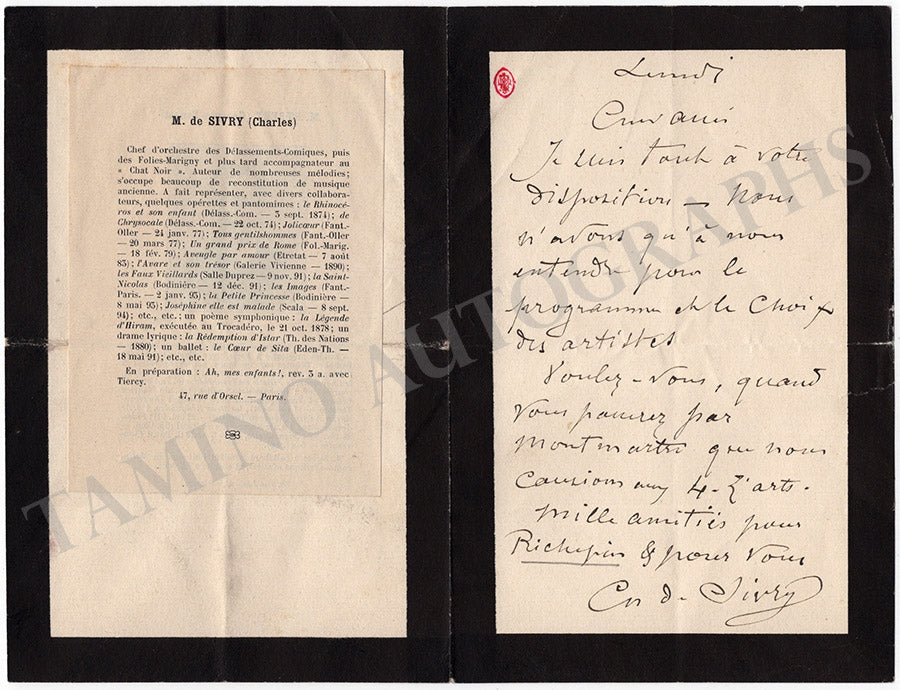 M. de SIVRY (Charles)
Chef d'orchestre des Délassements-Comiques, puis
des Folies-Marigny et plus tard accompagnateur au
« Chat Noir ». Auteur de nombreuses mélodies;
s'occupe beaucoup de reconstitution de musique
ancienne. A fait représenter, avec divers collabora-
teurs, quelques opérettes et pantomimes : le Rhinocé-
ros et son enfant (Délass.-Com. — 3 sept. 1874); de
Chrysocale (Délass.-Com. — 22 oct. 74); Jolicœur (Fant.-
Oller — 24 janv. 77); Tous gentilshommes (Fant.-Oller
— 20 mars 77); Un grand prix de Rome (Fol.-Marig.
— 18 fév. 79); Aveugle par amour (Etretat — 7 août
83); l'Avare et son trésor (Galerie Vivienne — 1890);
les Faux Vieillards (Salle Duprez — 9 nov. 91); la Saint-
Nicolas (Bodinière — 12 déc. 91); les Images (Fant.-
Paris. — 2 janv. 93); la Petite Princesse (Bodinière —
8 mai 93); Joséphine elle est malade (Scala — 8 sept.
94); etc., etc.; un poème symphonique : la Légende
d'Hiram, exécutée au Trocadéro, le 21 oct. 1878; un
drame lyrique : la Rédemption d'Istar (Th. des Nations
— 1880); un ballet : le Cœur de Sita (Eden-Th. —
18 mai 91); etc., etc.
En préparation : Ah, mes enfants!, rev. 3 a. avec
Tiercy.
47, rue d'Orsel. — Paris.
Lundi
Cher ami
Je suis tout à votre
disposition — nous
n'avons qu'à nous
entendre pour le
programme et le choix
des artistes
Voulez-vous, quand
vous passerez par
Montmartre que nous
causions aux 4-Z'arts.
Mille amitiés pour
Richepin & pour vous
Ch de Sivry
TAMINO AUTOGRAPHS